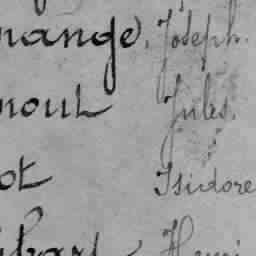 nange, Joseph.
noul Jules.
ot Isidore
Henri